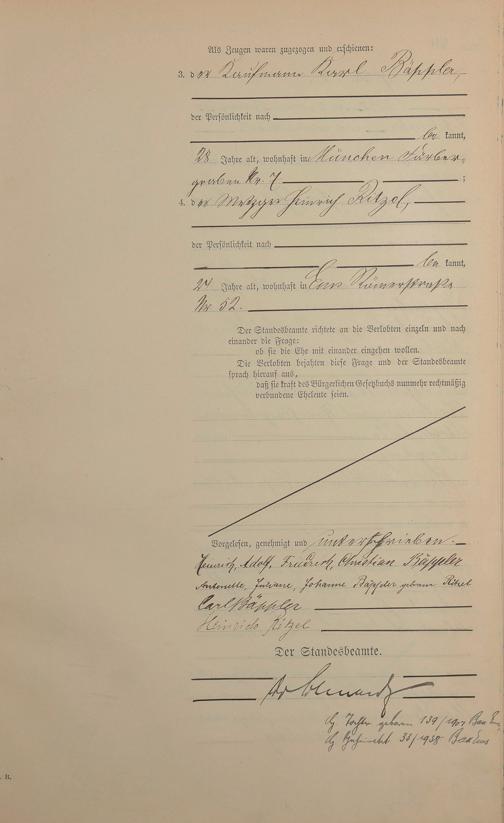 Als Zeugen waren zugezogen und erschienen:
3. der Kaufmann Karl Bäppler,
der Persönlichkeit nach
be kannt,
28 Jahre alt, wohnhaft in München Färber-
graben Nr. 7 ;
4. der Metzger Heinrich Ritzel,
der Persönlichkeit nach
be kannt,
24 Jahre alt, wohnhaft in Ems Römerstraße
Nr. 52.
Der Standesbeamte richtete an die Verlobten einzeln und nach
einander die Frage:
ob sie die Ehe mit einander eingehen wollen.
Die Verlobten bejahten diese Frage und der Standesbeamte
sprach hierauf aus,
daß sie kraft des Bürgerlichen Gesetzbuchs nunmehr rechtmäßig
verbundene Eheleute seien.
Vorgelesen, genehmigt und unterschrieben.
Heinrich, Adolf, Friedrich, Christian Bäppler
Antonette, Juliane, Johanne Bäppler geborn Ritzel
Carl Bäppler
Heinrich Ritzel
Der Standesbeamte.
Tochter geboren 139/1907 Bad Ems
35/1938 Bad Ems
B.